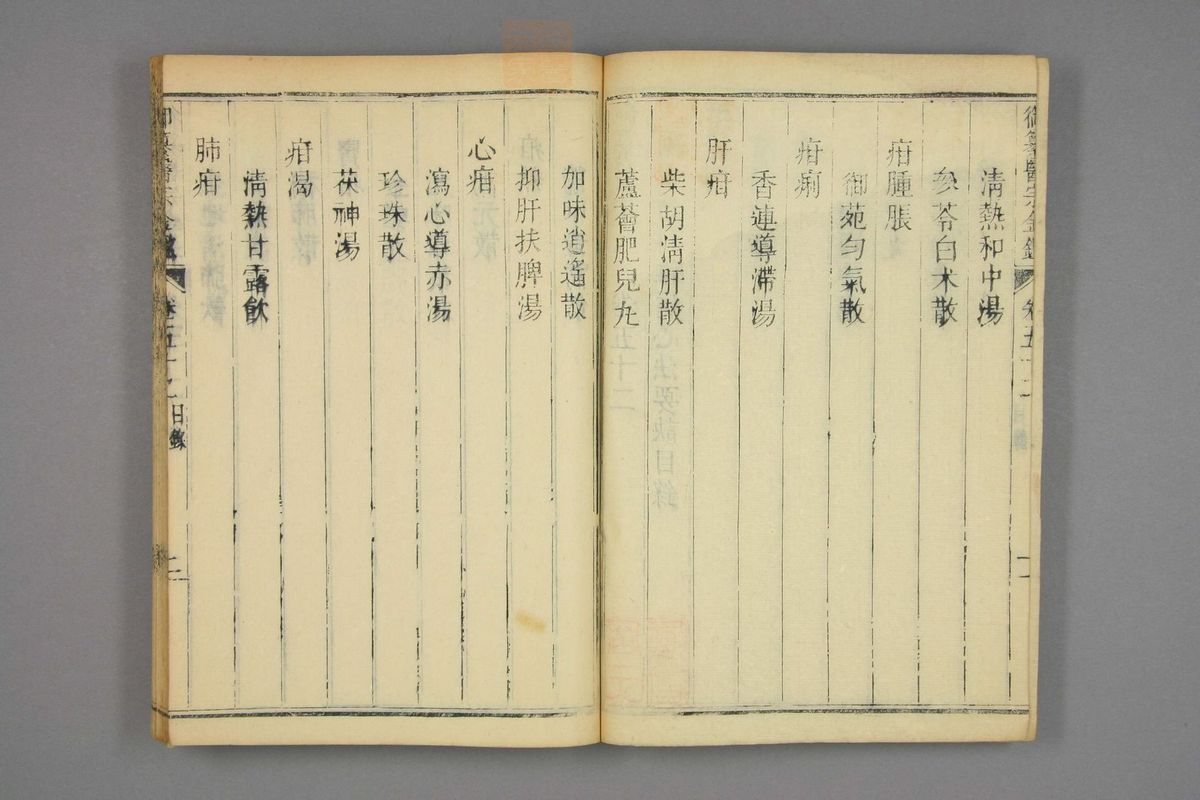 御纂醫宗金鑑 卷五十二
清熱和中湯
參苓白朮散
疳腫脹
御苑勻氣散
疳痢
香連導滯湯
肝疳
柴胡清肝散
蘆薈肥兒丸
加味逍遙散
抑肝扶脾湯
心疳
瀉心導赤湯
珍珠散
茯神湯
疳渴
清熱甘露飲
肺疳
御纂醫宗金鑑 卷五十二 目錄 二